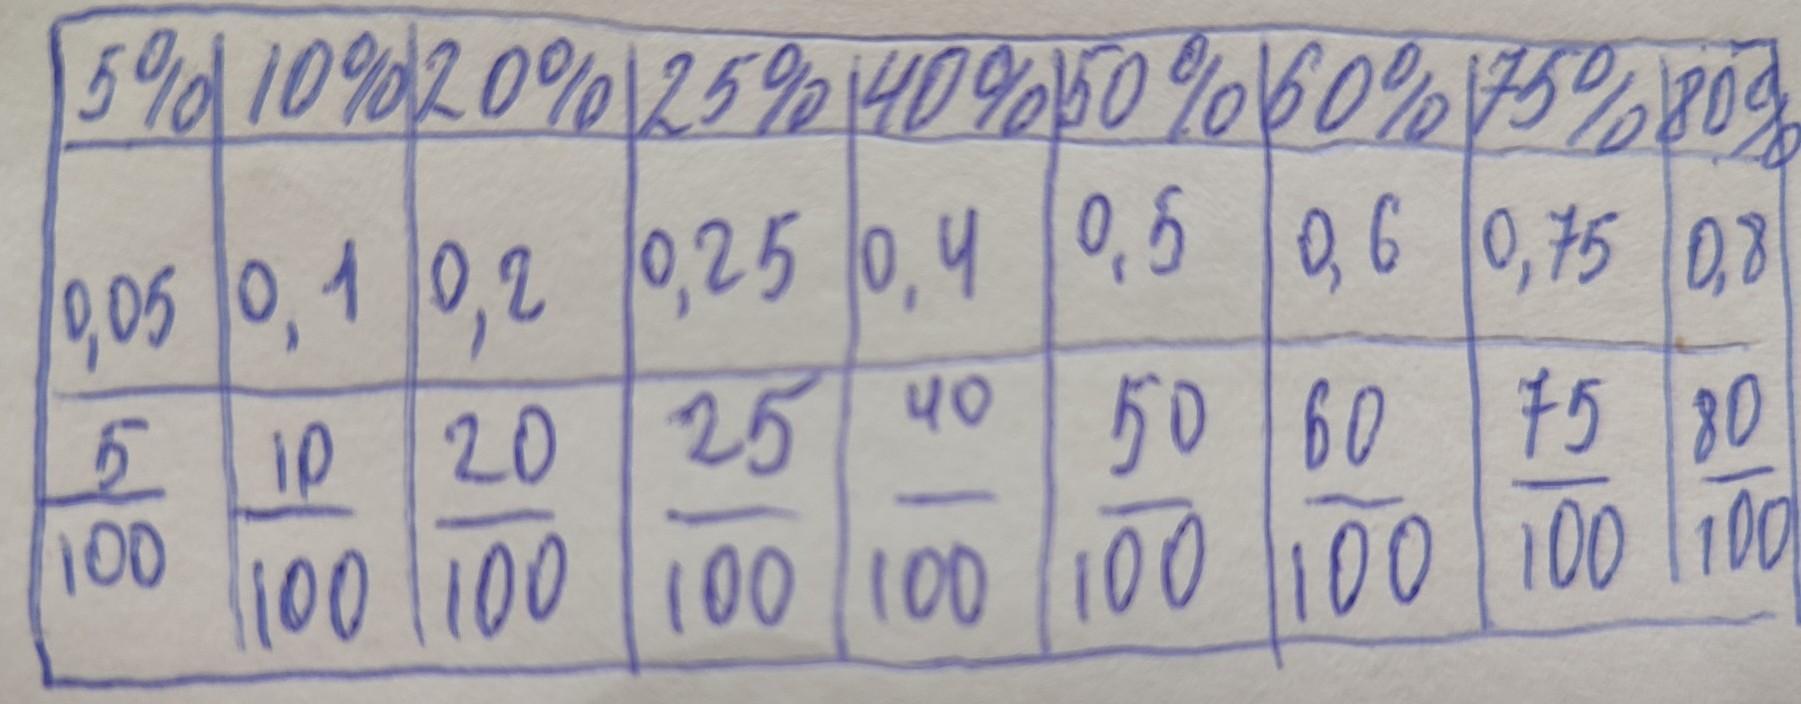 5% 10% 20% 25% 40% 50% 60% 75% 80%
0,05 0,1 0,2 0,25 0,4 0,5 0,6 0,75 0,8
5 10 20 25 40 50 60 75 80
100 100 100 100 100 100 100 100 100